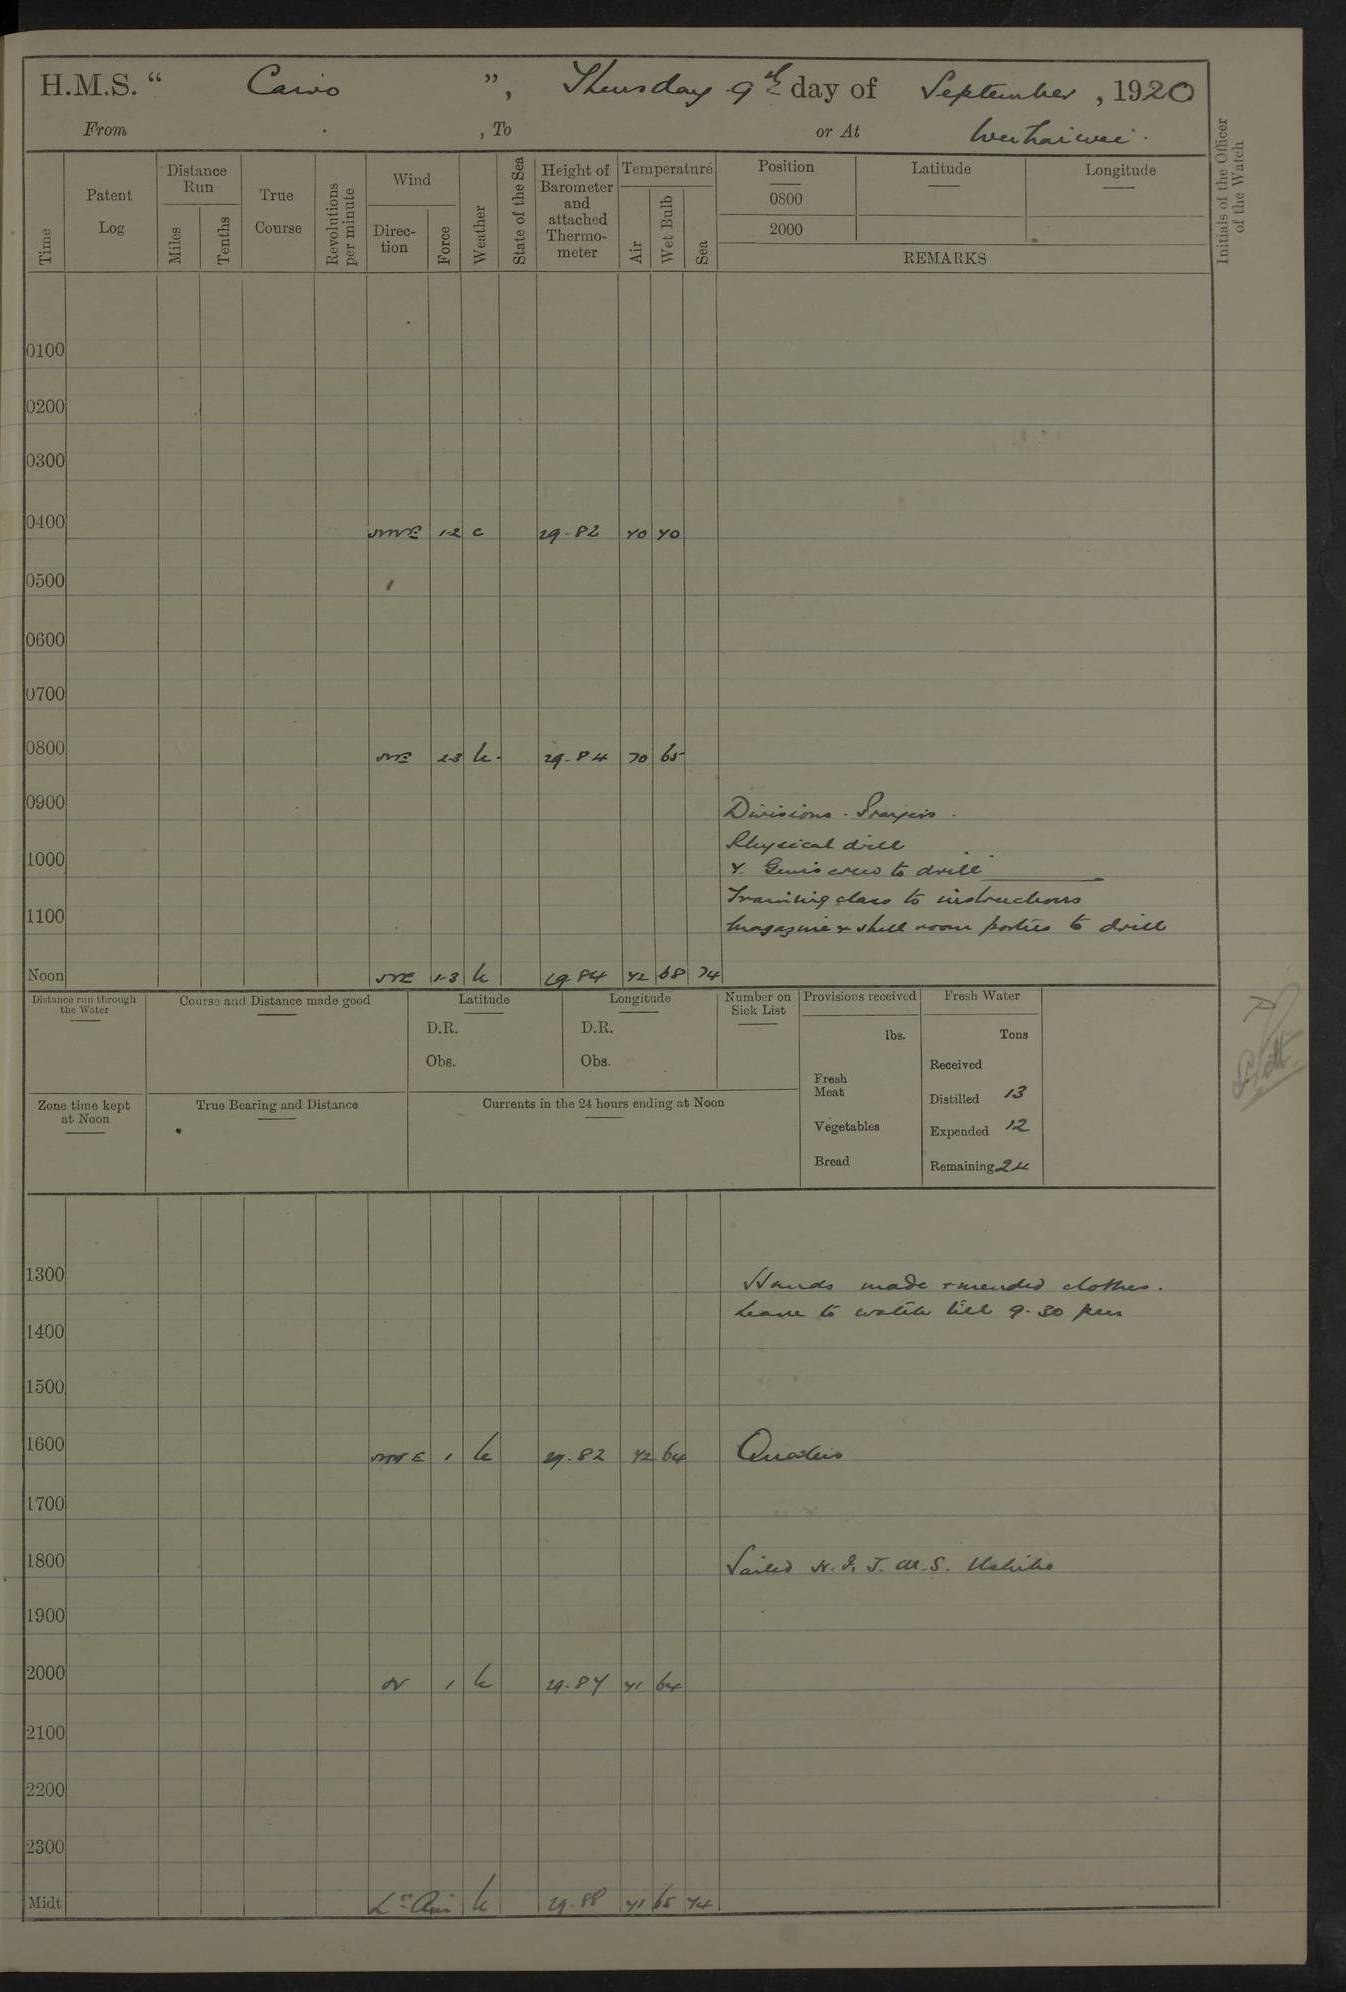 H.M.S. “ Cairo ”, Thursday 9th day of September, 1920
From , To or At Weihaiwei.
Time
Patent Log
Distance Run
Miles
Tenths
True Course
Revolutions per minute
Wind
Direction
Force
Weather
State of the Sea
Height of Barometer and attached Thermometer
Temperature
Air
Wet Bulb
Sea
Position
0800
2000
Latitude
Longitude
REMARKS
Initials of the Officer of the Watch
0100
0200
0300
0400 NNE 1-2 c 29.82 70 70
0500
0600
0700
0800 NE 2-3 b. 29.84 70 65
0900 Divisions. Prayers.
Physical drill
1000
Y. Guns crew to drill
Training class to instructions
1100
Magazine & shell room parties to drill
Noon NE 1-3 b 29.84 72 68 74
Distance run through the Water
Course and Distance made good
Latitude
D.R.
Obs.
Longitude
D.R.
Obs.
Number on Sick List
Provisions received
lbs.
Fresh Meat
Vegetables
Bread
Fresh Water
Tons
Received
Distilled 13
Expended 12
Remaining 24
Zone time kept at Noon
True Bearing and Distance
Currents in the 24 hours ending at Noon
1300 Hands made & mended clothes.
Leave to watch till 9.30 pm
1400
1500
1600 NNE 1 b 29.82 72 64 Quarters
1700
1800 Sailed H.I.J.M.S.
1900
2000 N 1 b 29.87 71 64
2100
2200
2300
Midt Lt Airs b 29.88 71 65 74